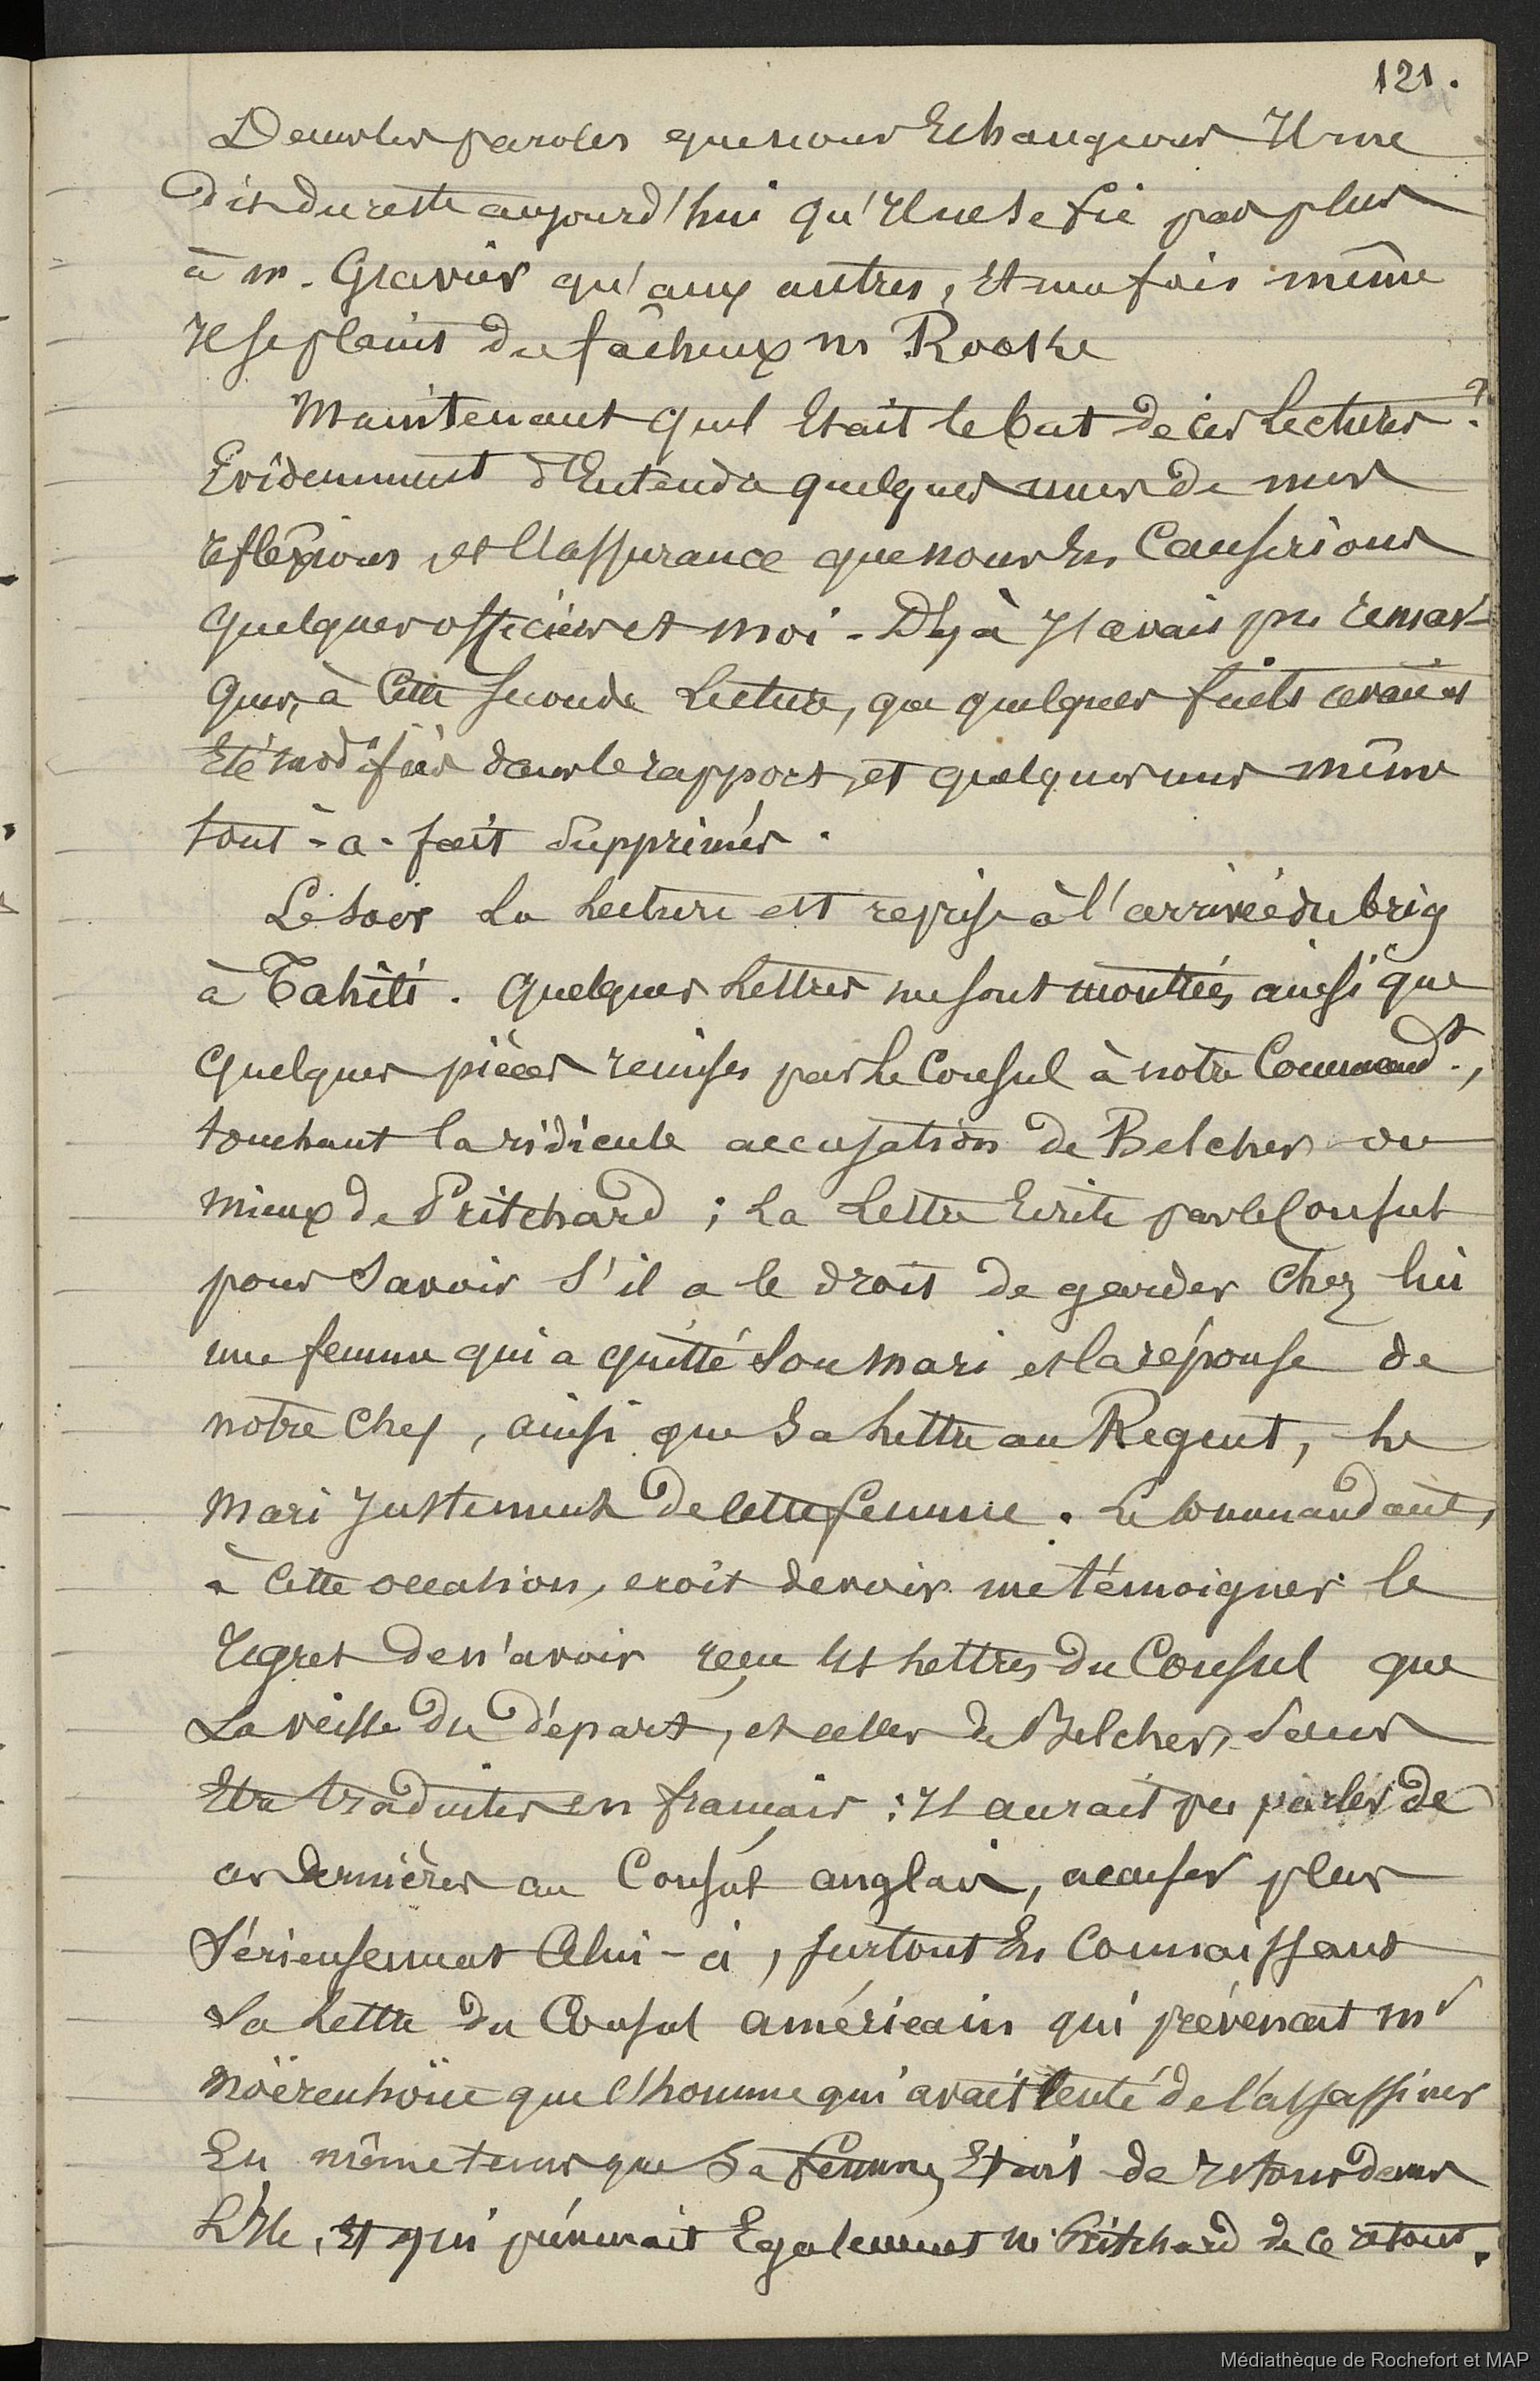 121.
Dans les paroles que nous Echangions Il me
dit du reste aujourd'hui qu'Il ne se fie pas plus
à m. Gravier qu'aux autres, Et ma fois même
Il se plaint du fâcheux mr Rooke
Maintenant quel Etait le but de ces Lectures ?
Evidemment d'Entendre quelques unes de mes
réflexions et l'assurance que nous En Causerions
quelques officiers et moi - Déjà J'avais pu remar-
quer, à Cette seconde Lecture, que quelques faits avaient
Eté modifiés dans le rapport, et quelques uns même
tout-à-fait supprimés.
Le soir La Lecture est reprise à l'arrivée du brig
à Tahiti. Quelques Lettres me sont montrées ainsi que
quelques pièces remises par Le Consul à notre Commandt,
touchant la ridicule accusation de Belcher ou
mieux de Pritchard ; La Lettre Ecrite par le Consul
pour Savoir S'il a le droit de garder Chez lui
une femme qui a quitté Son mari et la réponse de
notre Chef, ainsi que Sa Lettre au Régent, Le
mari Justement de Cette femme. Le Commandant,
à Cette occasion, croit devoir me témoigner le
regret de n'avoir reçu les Lettres du Consul que
La veille du départ, et celles de Belcher, Sans
Etre traduites en français : Il aurait pu parler de
ces dernières au Consul anglais, accuser plus
Sérieusement Celui-ci, surtout En Connaissant
La Lettre du Consul américain qui prévenait mr
Moërenhoüe que l'homme qui avait tenté de l'assassiner
En même tems que Sa femme, Etait de retour dans
L'Ile, Et qui prévenait Egalement m. Pritchard de ce retour.
Médiathèque de Rochefort et MAP